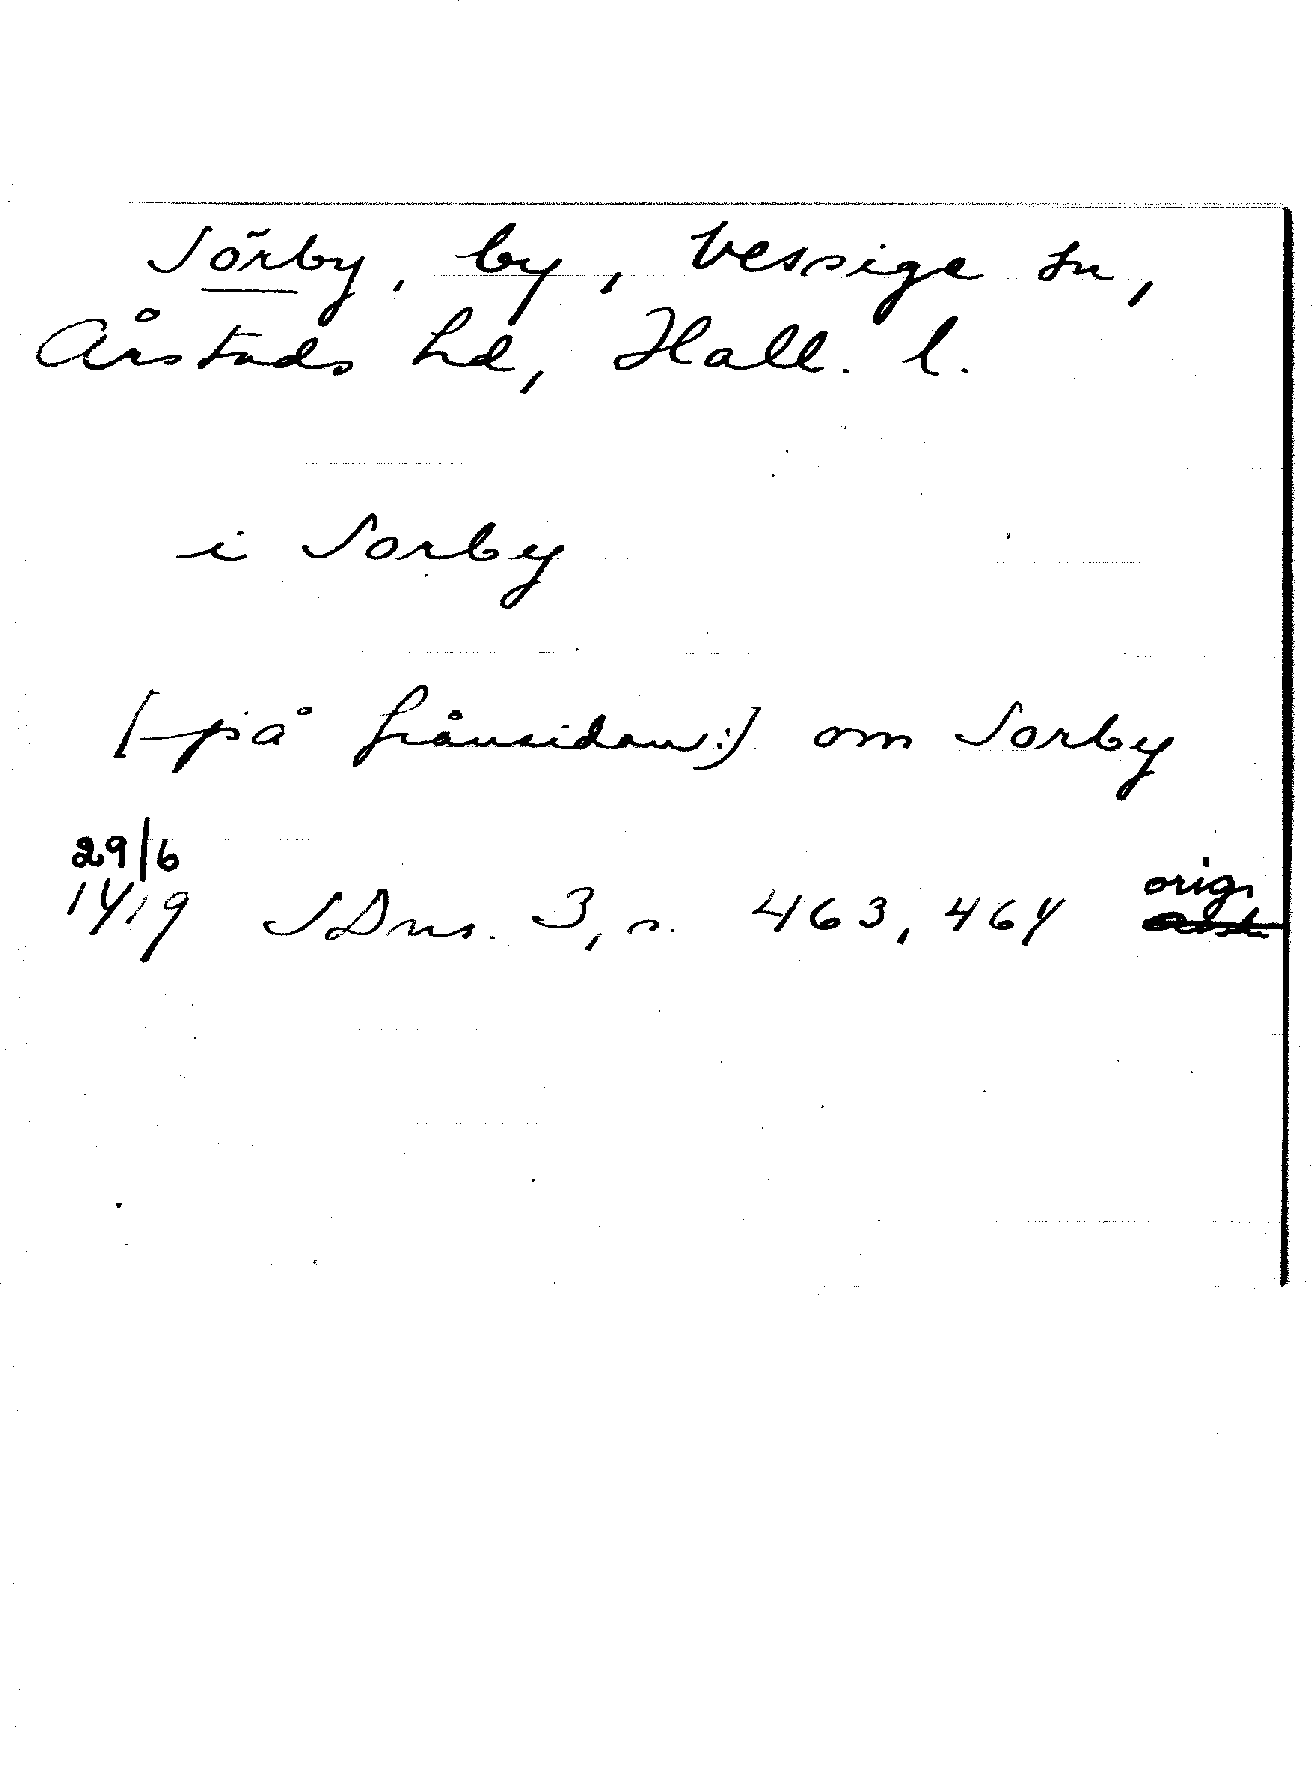 Sörby, by, Vessige sn,
Årstads hd, Hall. l.
i Sorby
(på frånsidan:) om Sorby
29/6
1419 SDns. 3, s. 463, 464 orig.